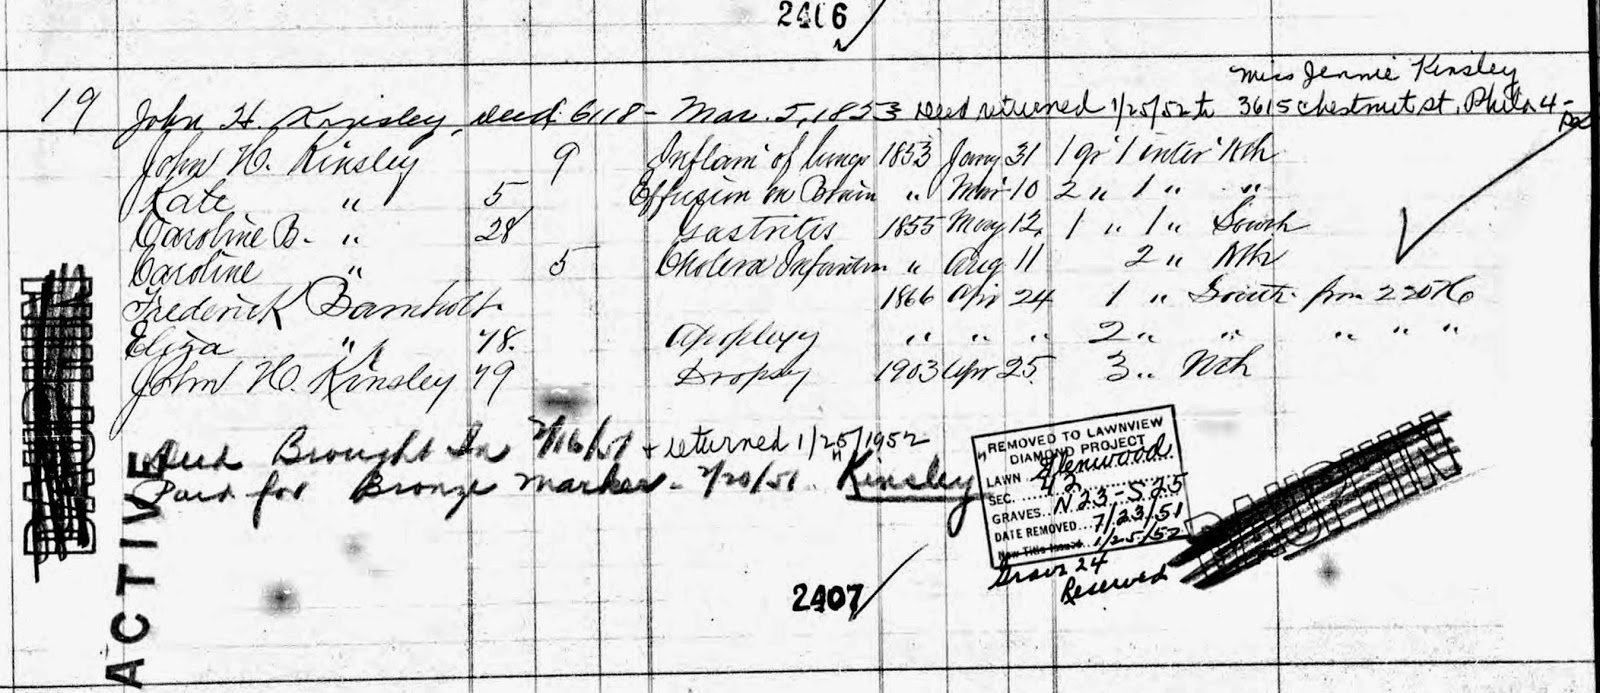 2406
Miss Jennie Kinsley
19 John H. Kinsley, Deed 6118 - Mar. 5, 1853 Deed returned 1/25/52 to 3615 Chestnut St. Phila 4 - Pa
John H. Kinsley 9 Inflam of lungs 1853 Jany 31 1 gr 1 inter Nth
Kate " 5 Effusion on Brain " Mar 10 2 " 1 " "
Caroline B. " 28 Gastrites 1855 May 12, 1 " 1 " South
Caroline " 5 Cholera Infantum " Aug 11 2 " Nth
Frederick Barnholt 1866 Apr 24 1 " South from 220
Eliza " 78. Apoplexy " " " 2 " " " " "
John H. Kinsley 79 Dropsy 1903 Apr 25. 3 " Nth
Deed Brought In 7/16/51 + returned 1/25/1952
Paid for Bronze Marker - 7/20/51. Kinsley
REMOVED TO LAWNVIEW
DIAMOND PROJECT
LAWN Glenwood
SEC. 42
GRAVES N 23 - S 25
DATE REMOVED 7/23/51
New Title Issued 1/25/52
Grave 24
Reserved
DAUPHIN
DAUPHIN
ACTIVE
2407